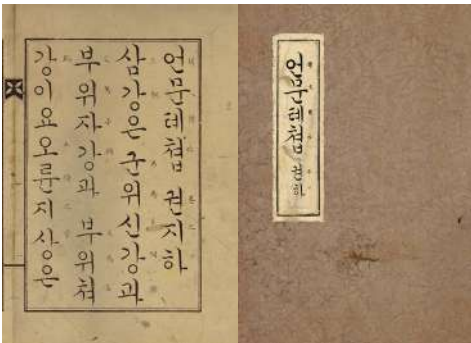 언문톄쳡 권하
언문톄쳡 권지하
삼강은 군위신강과
부위자강과 부위쳐
강이요 오륜지상은